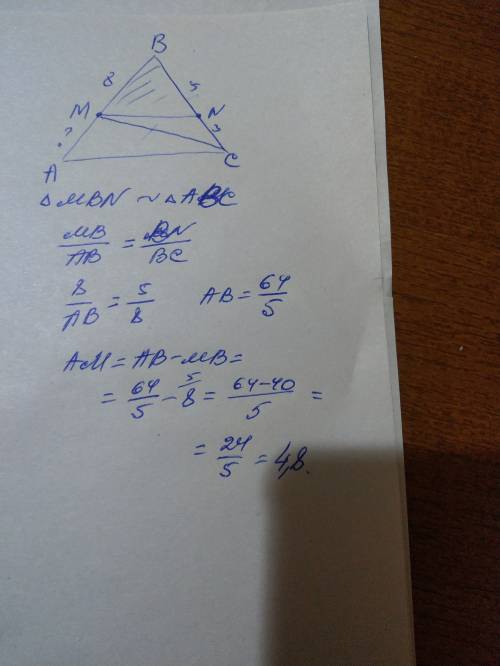 B
8 5
M N
? 3
A C
△MBN ~ △ABC
MB/AB = BN/BC
8/AB = 5/8 AB = 64/5
AM = AB - MB =
= 64/5 - 8 = 64-40/5 =
= 24/5 = 4,8.